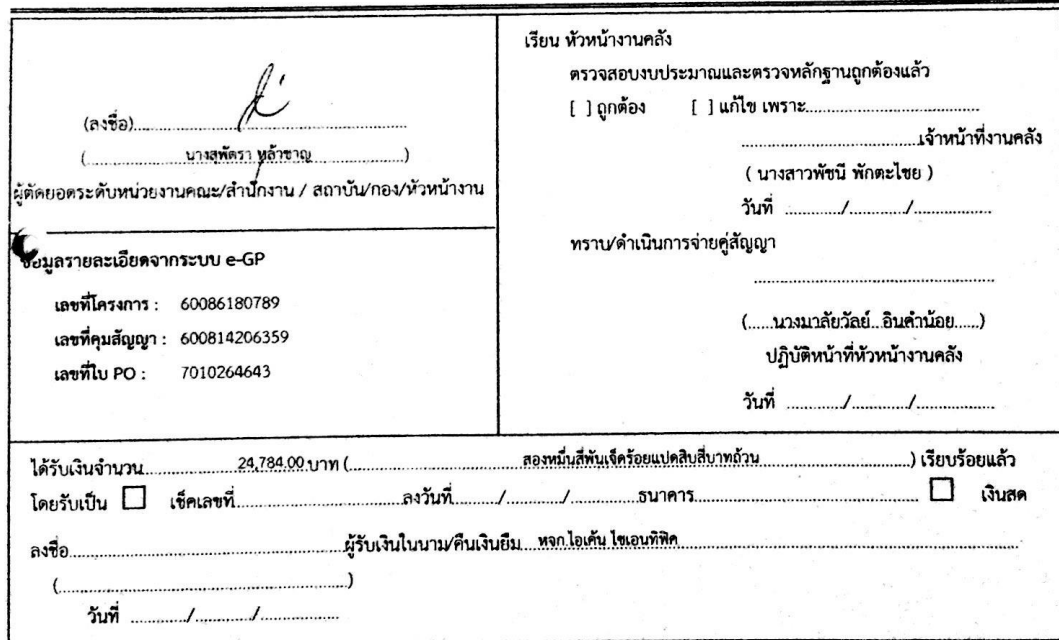 (ลงชื่อ)
(นางสุพัตรา หล้าชาญ)
ผู้ตัดยอดระดับหน่วยงานคณะ/สำนักงาน / สถาบัน/กอง/หัวหน้างาน
ข้อมูลรายละเอียดจากระบบ e-GP
เลขที่โครงการ : 60086180789
เลขที่คุมสัญญา : 600814206359
เลขที่ใบ PO : 7010264643
เรียน หัวหน้างานคลัง
ตรวจสอบงบประมาณและตรวจหลักฐานถูกต้องแล้ว
[ ] ถูกต้อง [ ] แก้ไข เพราะ
เจ้าหน้าที่งานคลัง
( นางสาวพัชนี พักตะไชย )
วันที่ / /
ทราบ/ดำเนินการจ่ายคู่สัญญา
(นางมาลัยวัลย์ อินคำน้อย)
ปฏิบัติหน้าที่หัวหน้างานคลัง
วันที่ / /
ได้รับเงินจำนวน 24,784.00 บาท (สองหมื่นสี่พันเจ็ดร้อยแปดสิบสี่บาทถ้วน) เรียบร้อยแล้ว
โดยรับเป็น ☐ เช็คเลขที่ ลงวันที่ / / ธนาคาร ☐ เงินสด
ลงชื่อ ผู้รับเงินในนาม/คืนเงินยืม หจก.ไอเค้น ไซเอนทิฟิค
( )
วันที่ / /